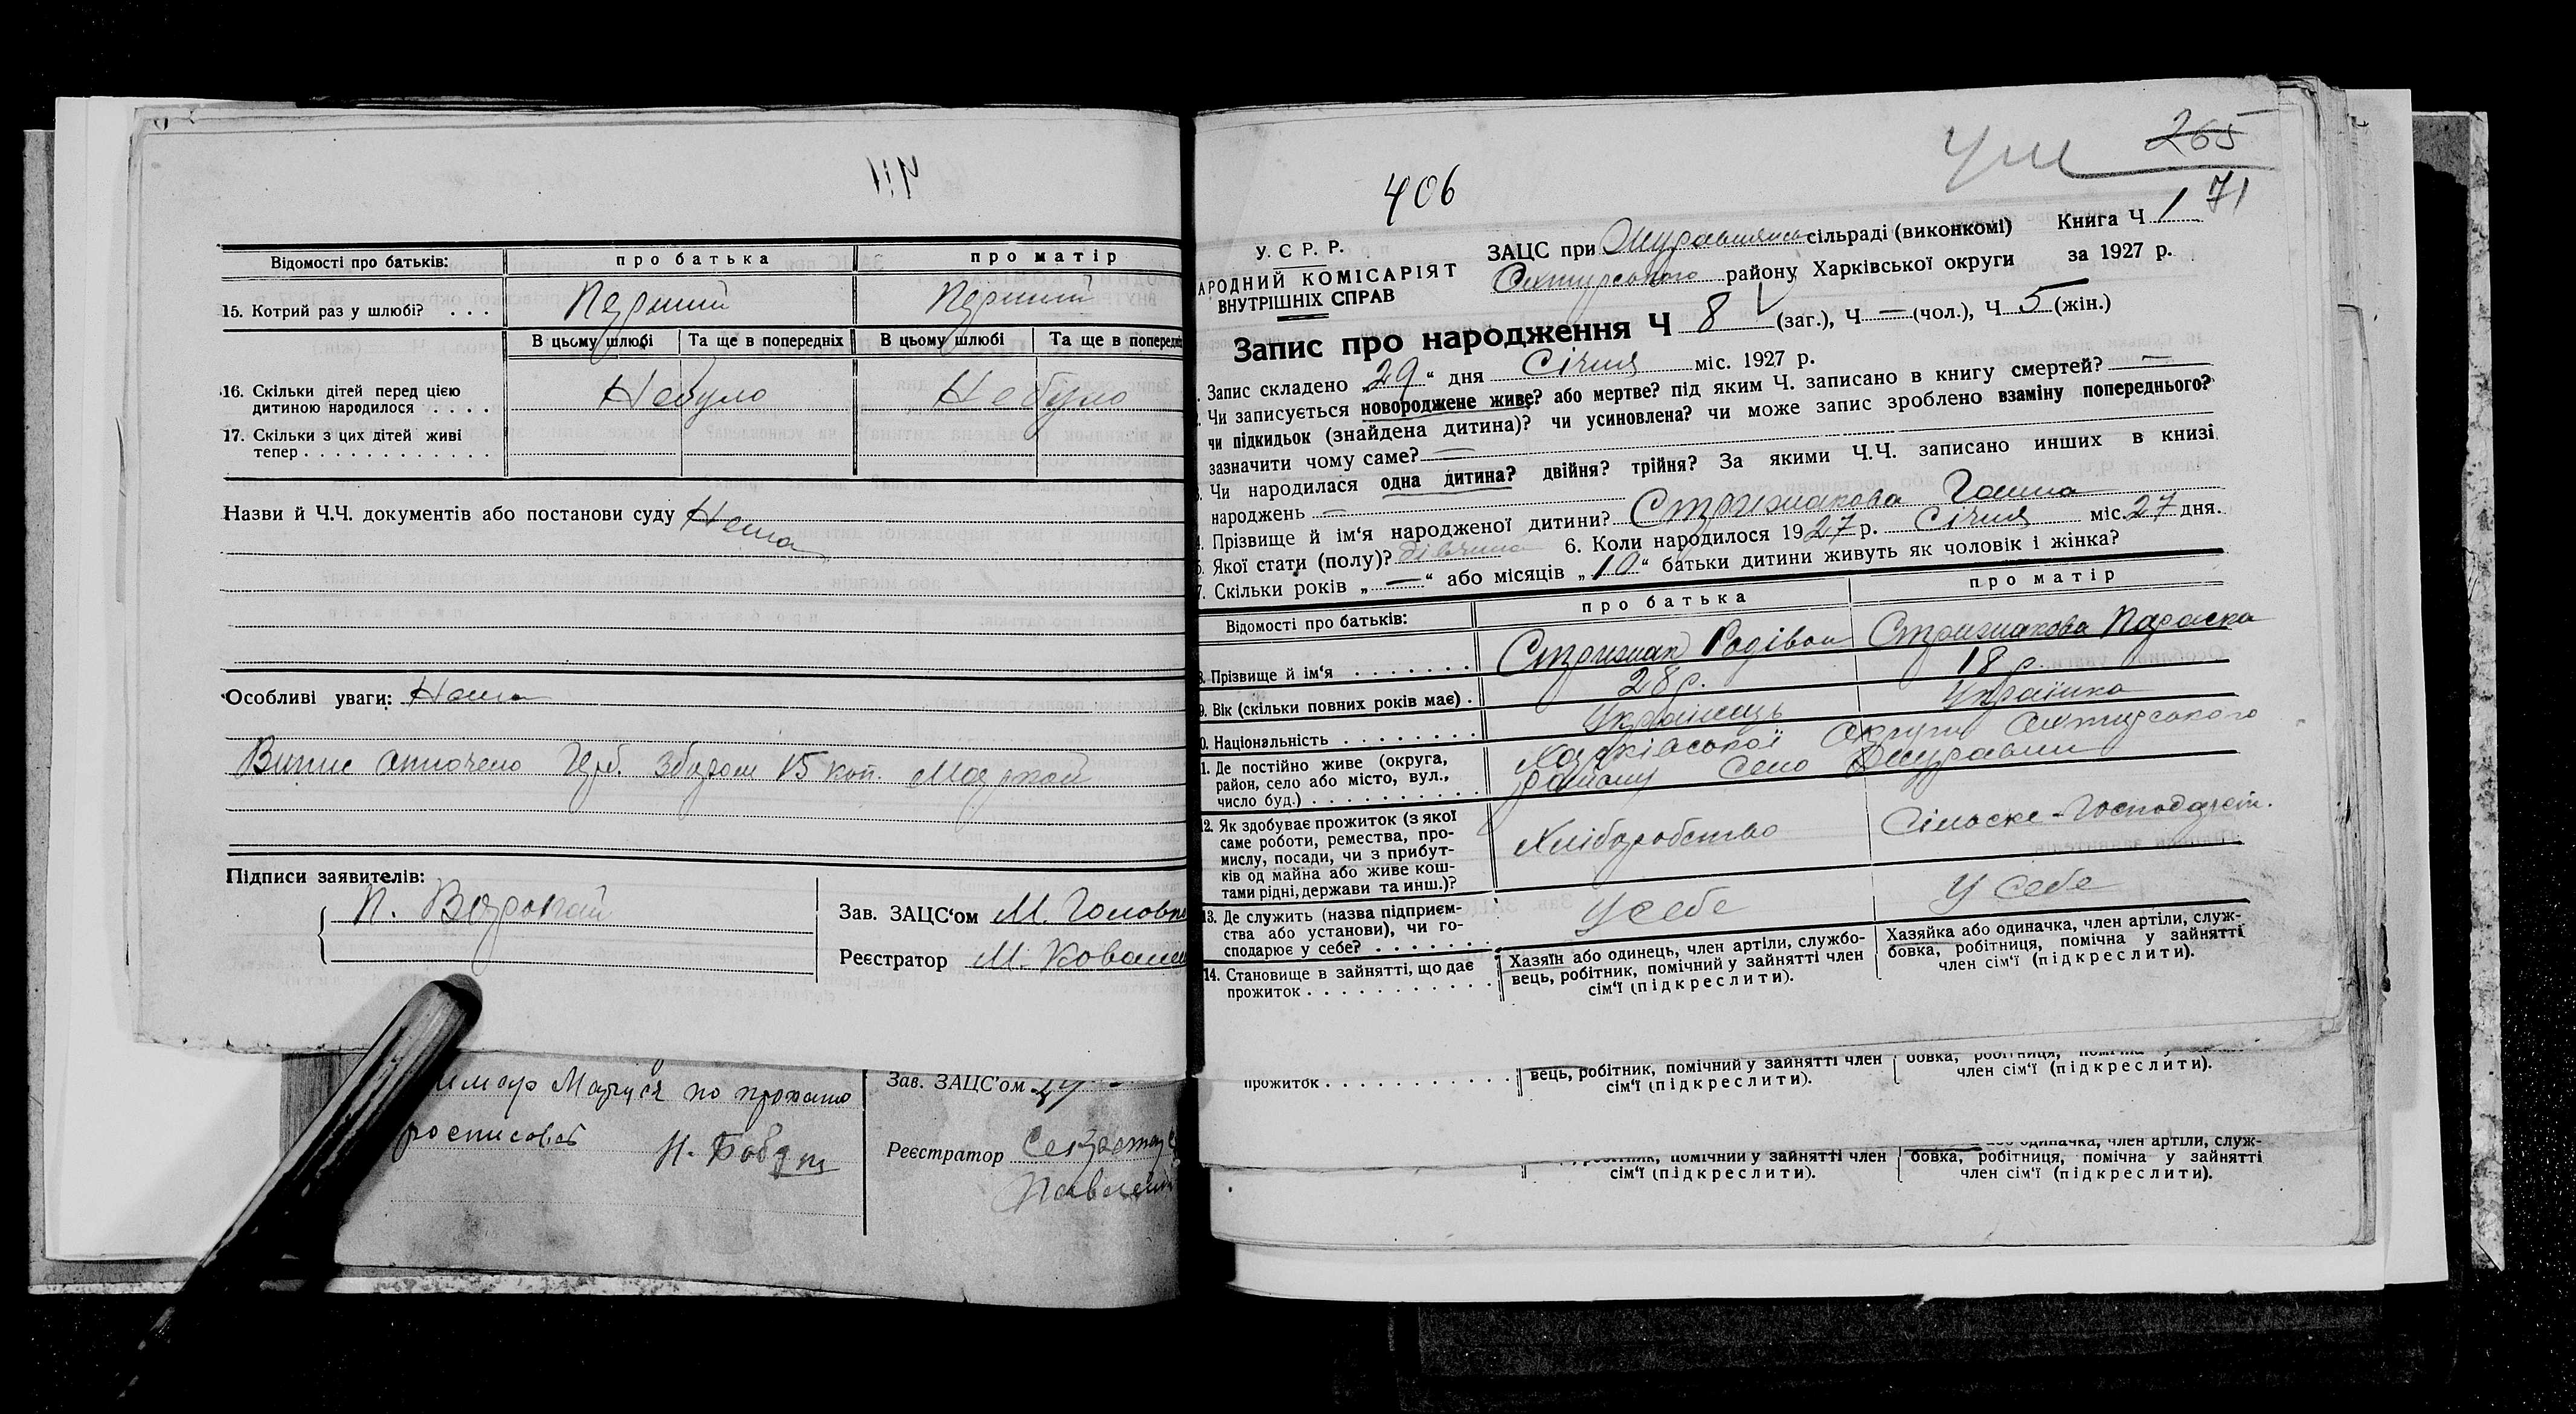 Відомості про батьків: про батька про матір
15. Котрий раз у шлюбі? . . . Перший Перший
В цьому шлюбі Та ще в попередніх В цьому шлюбі Та ще в поперед
16. Скільки дітей перед цією
дитиною народилося . . . . Небуло Небуло
17. Скільки з цих дітей живі
тепер . . . . . . . . . . . .
Назви й Ч.Ч. документів або постанови суду Нема
Особливі уваги: Нема
Випис оплочено герб. збором 15 коп. маркой
Підписи заявителів:
П.
Зав. ЗАЦС'ом М. Головко
Реєстратор М. Ковален
Маруся по прохано
росписовав Н.
Зав. ЗАЦС'ом
Реєстратор Секретар
265
406
71
У. С. Р. Р.
АРОДНИЙ КОМІСАРІЯТ
ВНУТРІШНІХ СПРАВ
ЗАЦС при сільраді (виконкомі) Книга Ч 1
району Харківської округи за 1927 р.
Запис про народження Ч 8 (заг.), Ч — (чол.), Ч 5 (жін.)
Запис складено „29“ дня Січня міс. 1927 р.
Чи записується новороджене живе? або мертве? під яким Ч. записано в книгу смертей? —
чи підкидьок (знайдена дитина)? чи усиновлена? чи може запис зроблено взаміну попереднього?
зазначити чому саме? —
Чи народилася одна дитина? двійня? трійня? За якими Ч.Ч. записано инших в книзі
народжень —
Прізвище й ім'я народженої дитини? Стрижакова Ганна
Якої стати (полу)? дівчина 6. Коли народилося 1927 р. Січня міс. 27 дня.
7. Скільки років „—“ або місяців „10“ батьки дитини живуть як чоловік і жінка?
Відомості про батьків: про батька про матір
8. Прізвище й ім'я . . . . . . . Стрижак Родівон Стрижакова Параска
9. Вік (скільки повних років має) . 28 р. 18 р.
0. Національність . . . . . . . . Українець Українка
1. Де постійно живе (округа,
район, село або місто, вул.,
число буд.) . . . . . . . . . . . Харківської Округи
району Село Журавни
12. Як здобуває прожиток (з якої
саме роботи, ремества, про-
мислу, посади, чи з прибут-
ків од майна або живе кош-
тами рідні, держави та инш.)? Хліборобство Сільске-Господарст.
13. Де служить (назва підприєм-
ства або установи), чи го-
сподарює у себе? . . . . . . . У себе У себе
14. Становище в зайнятті, що дає
прожиток . . . . . . . . . . . .
Хазяїн або одинець, член артіли, службо-
вець, робітник, помічний у зайнятті член
сім'ї (підкреслити).
Хазяйка або одиначка, член артіли, служ-
бовка, робітниця, помічна у зайнятті
член сім'ї (підкреслити).
прожиток . . . . . . . . . . . .
вець, робітник, помічний у зайнятті член
сім'ї (підкреслити).
бовка, робітниця,
член сім'ї (підкреслити).
одиначка, член артіли, служ-
робітник, помічний у зайнятті член
сім'ї (підкреслити).
бовка, робітниця, помічна у зайнятті
член сім'ї (підкреслити).